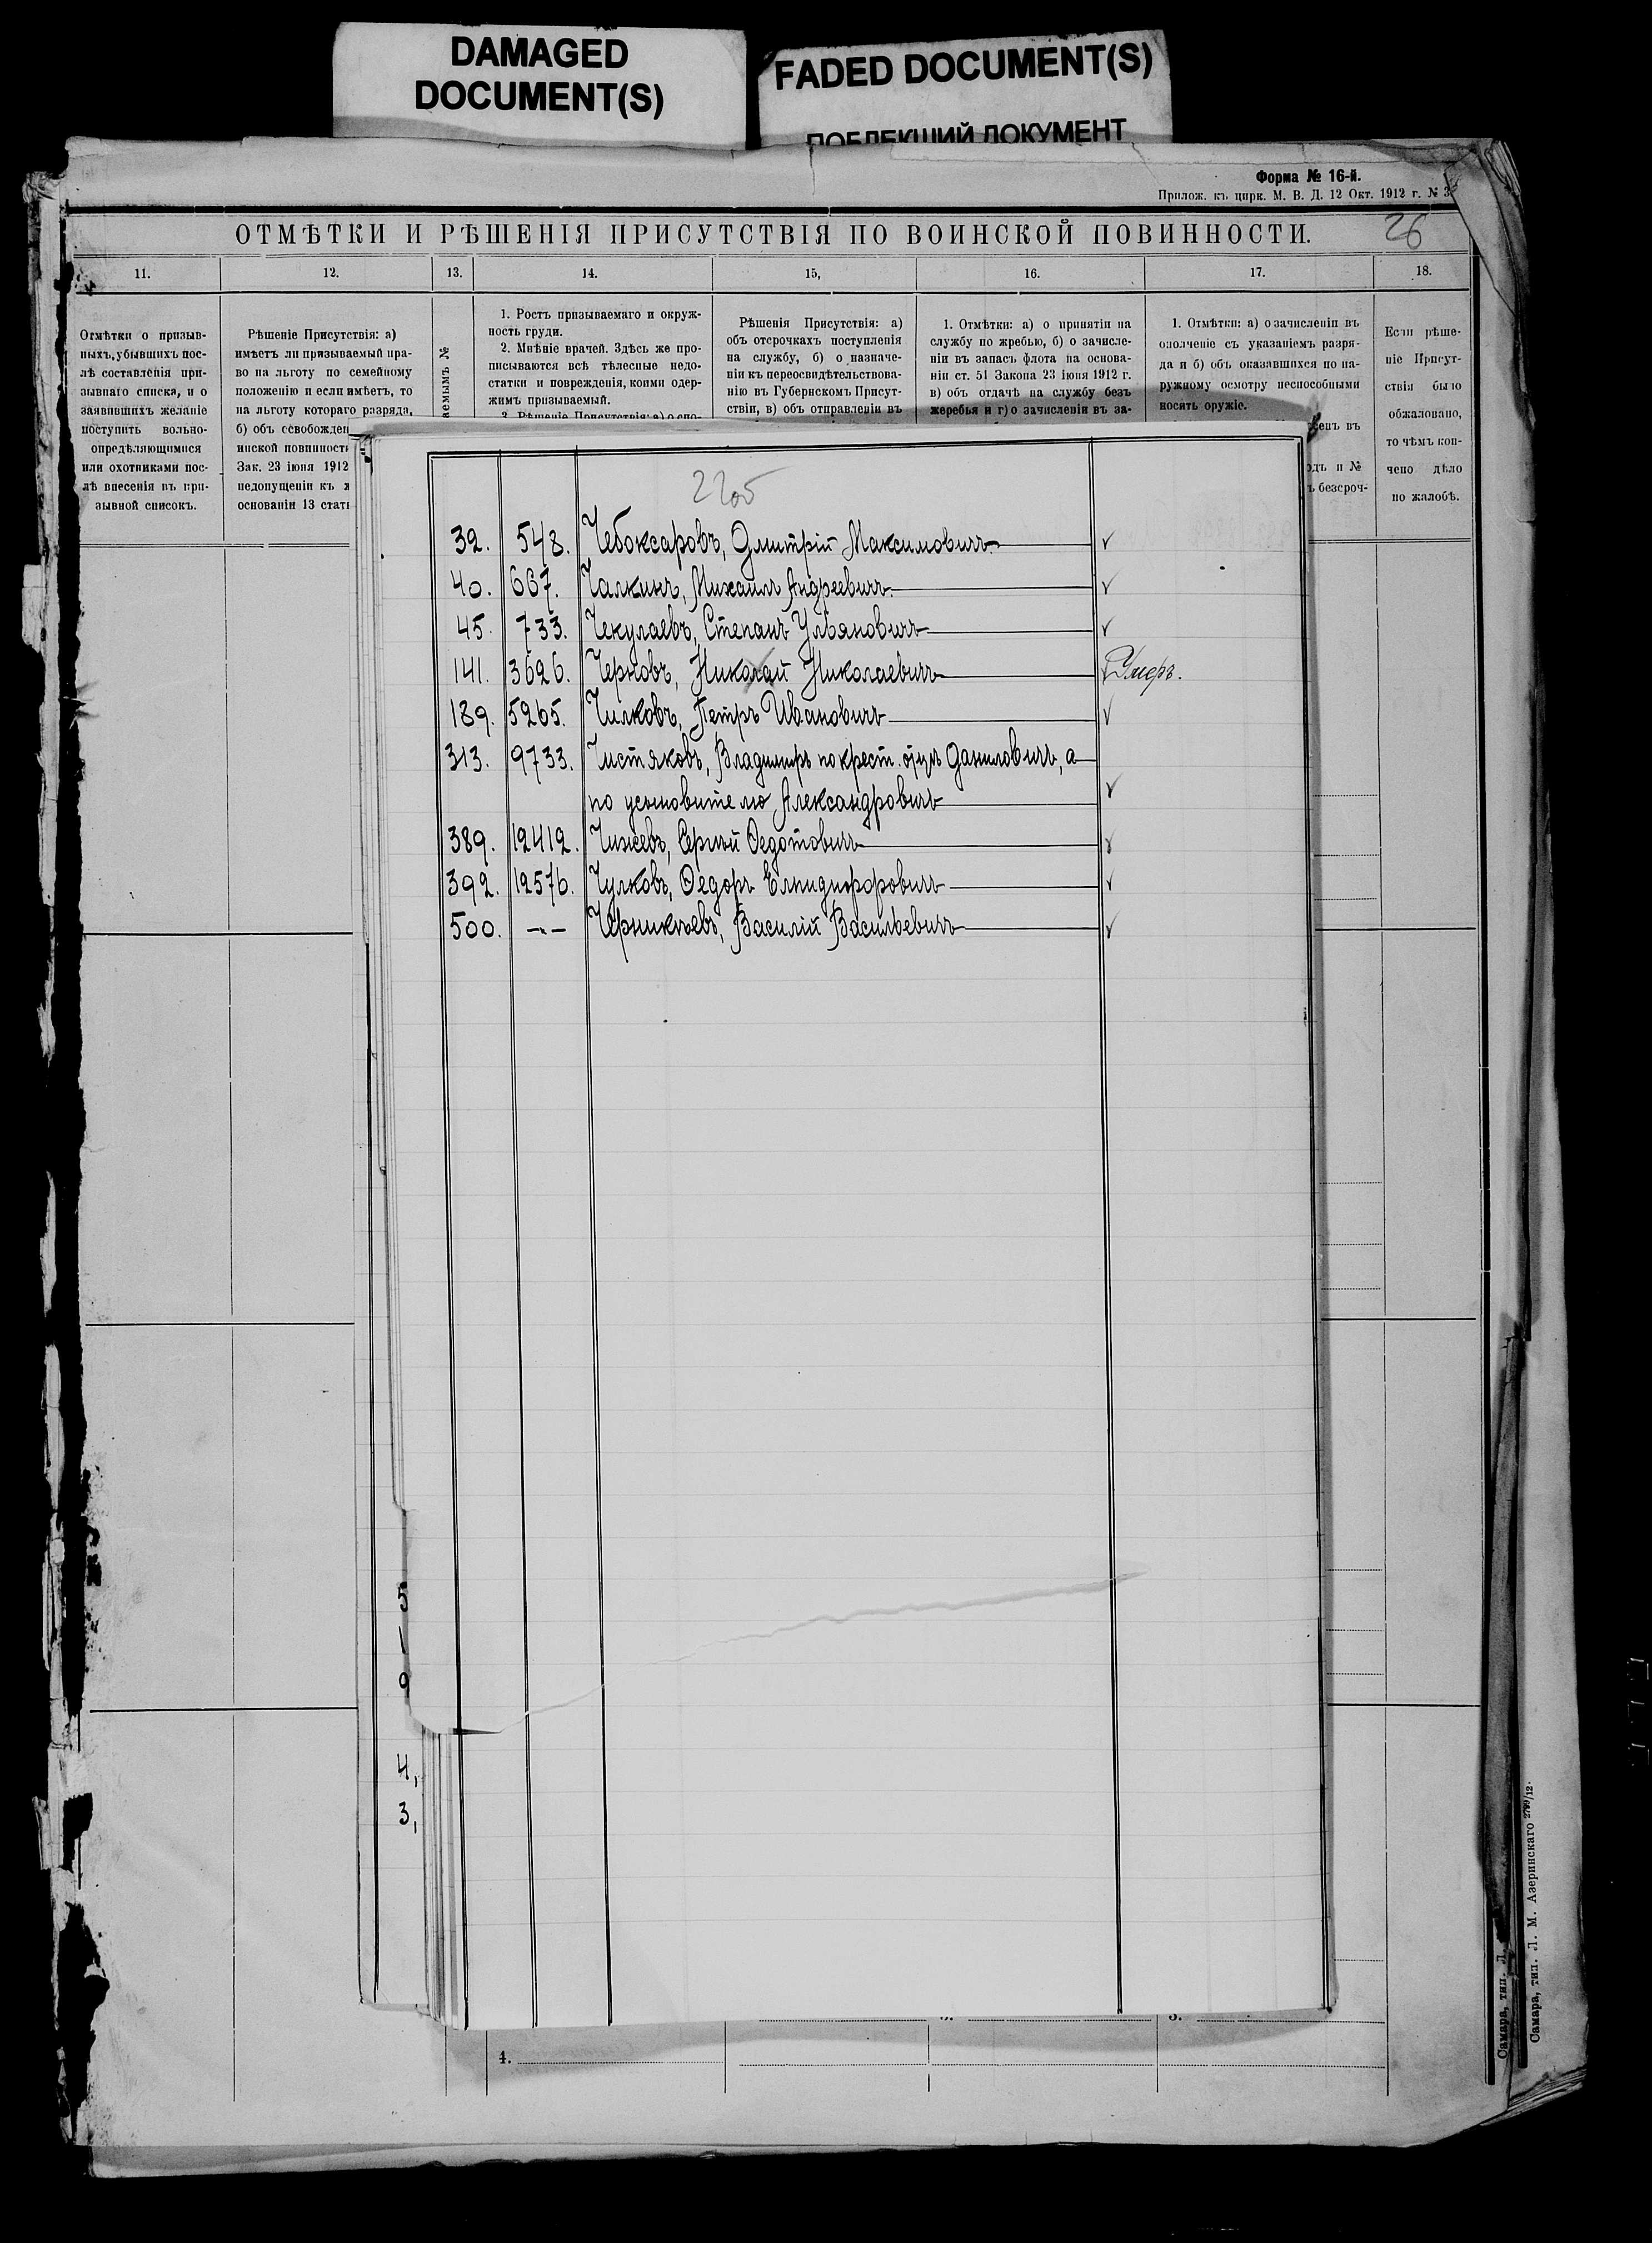 DAMAGED
DOCUMENT(S)
FADED DOCUMENT(S)
ПОБЛЕКШИЙ ДОКУМЕНТ
Форма № 16-й.
Прилож. къ цирк. М. В. Д. 12 Окт. 1912 г. №
ОТМѢТКИ И РѢШЕНІЯ ПРИСУТСТВІЯ ПО ВОИНСКОЙ ПОВИННОСТИ.
26
11.
12.
13.
14.
15,
16.
17.
18.
Отмѣтки о призыв-
ныхъ, убывшихъ пос-
лѣ составленія при-
зывнаго списка, и о
заявившихъ желаніе
поступить вольно-
опредѣляющимися
или охотниками пос-
лѣ внесенія въ при-
зывной списокъ.
Рѣшеніе Присутствія: а)
имѣетъ ли призываемый пра-
во на льготу по семейному
положенію и если имѣетъ, то
на льготу котораго разряда,
б) объ освобожден
инской повинност
Зак. 23 іюня 1912
недопущеніи къ
основаніи 13 стат
аемымъ №
1. Ростъ призываемаго и окруж-
ность груди.
2. Мнѣніе врачей. Здѣсь же про-
писываются всѣ тѣлесные недо-
статки и поврежденія, коими одер-
жимъ призываемый.
3. Рѣшеніе Присутствія: а) о спо-
Рѣшенія Присутствія: а)
объ отсрочкахъ поступленія
на службу, б) о назначе-
ніи къ переосвидѣтельствова-
нію въ Губернскомъ Присут-
ствіи, в) объ отправленіи въ
1. Отмѣтки: а) о принятіи на
службу по жребью, б) о зачисле-
ніи въ запасъ флота на основа-
ніи ст. 51 Закона 23 іюня 1912 г.
в) объ отдачѣ на службу безъ
жеребья и г) о зачисленіи въ за-
1. Отмѣтки: а) о зачисленіи въ
ополченіе съ указаніемъ разря-
да и б) объ оказавшихся по на-
ружному осмотру неспособными
носить оружіе.
сенъ въ
одъ и №
ъ безсроч-
Если рѣше-
ніе Присут-
ствія было
обжаловано,
то чѣмъ кон-
чено дѣло
по жалобѣ.
2205
32. 548. Чебоксаровъ, Дмитрій Максимовичъ
40. 667. Чалкинъ, Михаилъ Андреевичъ.
45. 733. Чекулаевъ, Степанъ Ульяновичъ
141. 3626. Черновъ, Николай Николаевичъ Умеръ.
189. 5265. Чилковъ, Петръ Ивановичъ
313. 9733. Чистяковъ, Владимиръ по крест. отцу Даниловичъ, а
по усыновителю Александровичъ
389. 12412. Чижевъ, Сергѣй Ѳедотовичъ
392. 12576. Чулковъ, Ѳедоръ Елпидифоровичъ
500. -"- Черникѣевъ, Василій Васильевичъ
5
9
4,
3,
4.
Самара, тип. Л.
Самара, тип. Л. М. Азеринскаго